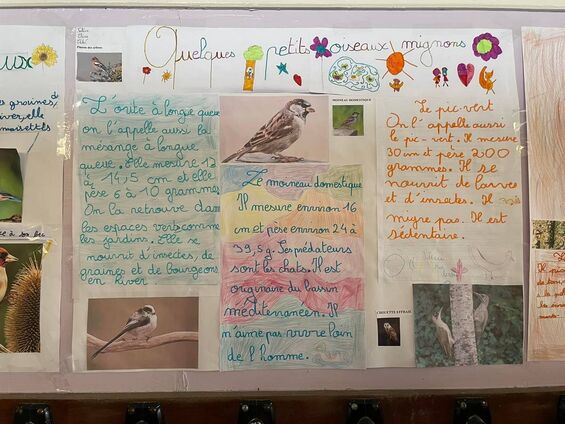 Quelques petits oiseaux mignons
L'orite à longue queue
on l'appelle aussi la
mésange à longue
queue. Elle mesure 12
à 14,5 cm et elle
pèse 6 à 10 grammes.
On la retrouve dans
les espaces verts comme
les jardins. Elle se
nourrit d'insectes, de
graines et de bourgeons
en hiver
MOINEAU DOMESTIQUE
Le moineau domestique
Il mesure environ 16
cm et pèse environ 24 à
39,5 g. Ses prédateurs
sont les chats. Il est
originaire du bassin
méditerranéen. Il
n'aime pas vivre loin
de l'homme.
Le pic-vert
On l'appelle aussi
le pic-vert. Il mesure
30 cm et pèse 200
grammes. Il se
nourrit de larves
et d'insectes. Il
migre pas. Il est
sédentaire.
CHOUETTE EFFRAIE